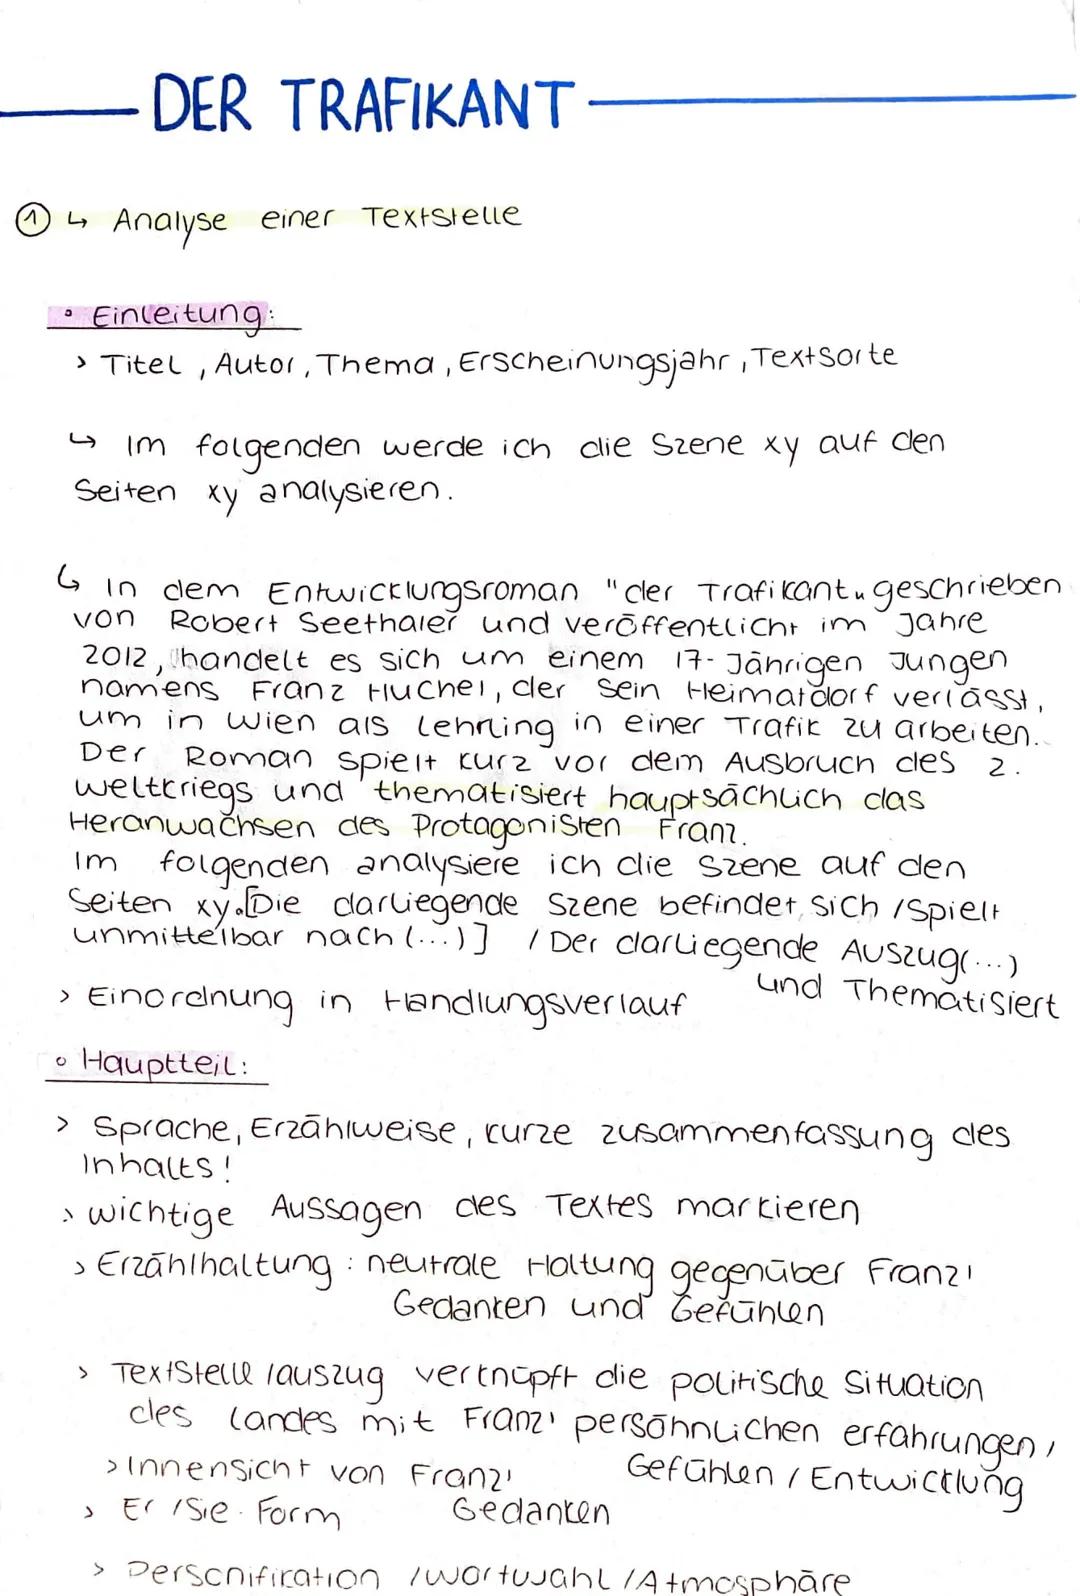 DER TRAFIKANT
① ↳ Analyse einer Textstelle
• Einleitung:
> Titel, Autor, Thema, Erscheinungsjahr, Textsorte
↳ Im folgenden werde ich die Szene xy auf den
Seiten xy analysieren.
↳ In dem Entwicklungsroman "der Trafikant" geschrieben
von Robert Seethaler und veröffentlicht im Jahre
2012, handelt es sich um einem 17-Jährigen Jungen
namens Franz Huchel, der sein Heimatdorf verlässt,
um in Wien als Lehrling in einer Trafik zu arbeiten.
Der Roman spielt kurz vor dem Ausbruch des 2.
Weltkriegs und thematisiert hauptsächlich das
Heranwachsen des Protagonisten Franz.
Im folgenden analysiere ich die Szene auf den
Seiten xy. [Die darliegende Szene befindet sich / spielt
unmittelbar nach (...)] / Der darliegende Auszug (...)
und Thematisiert
> Einordnung in Handlungsverlauf
• Hauptteil:
> Sprache, Erzählweise, kurze zusammenfassung des
Inhalts!
> wichtige Aussagen des Textes markieren
> Erzählhaltung: neutrale Haltung gegenüber Franz'
Gedanken und Gefühlen
> Textstelle / auszug verknüpft die politische Situation
des Landes mit Franz' persöhnlichen erfahrungen,
Gefühlen / Entwicklung
> Innensicht von Franz'
Gedanken
> Er / Sie - Form
> Personifikation / Wortwahl / Atmosphäre